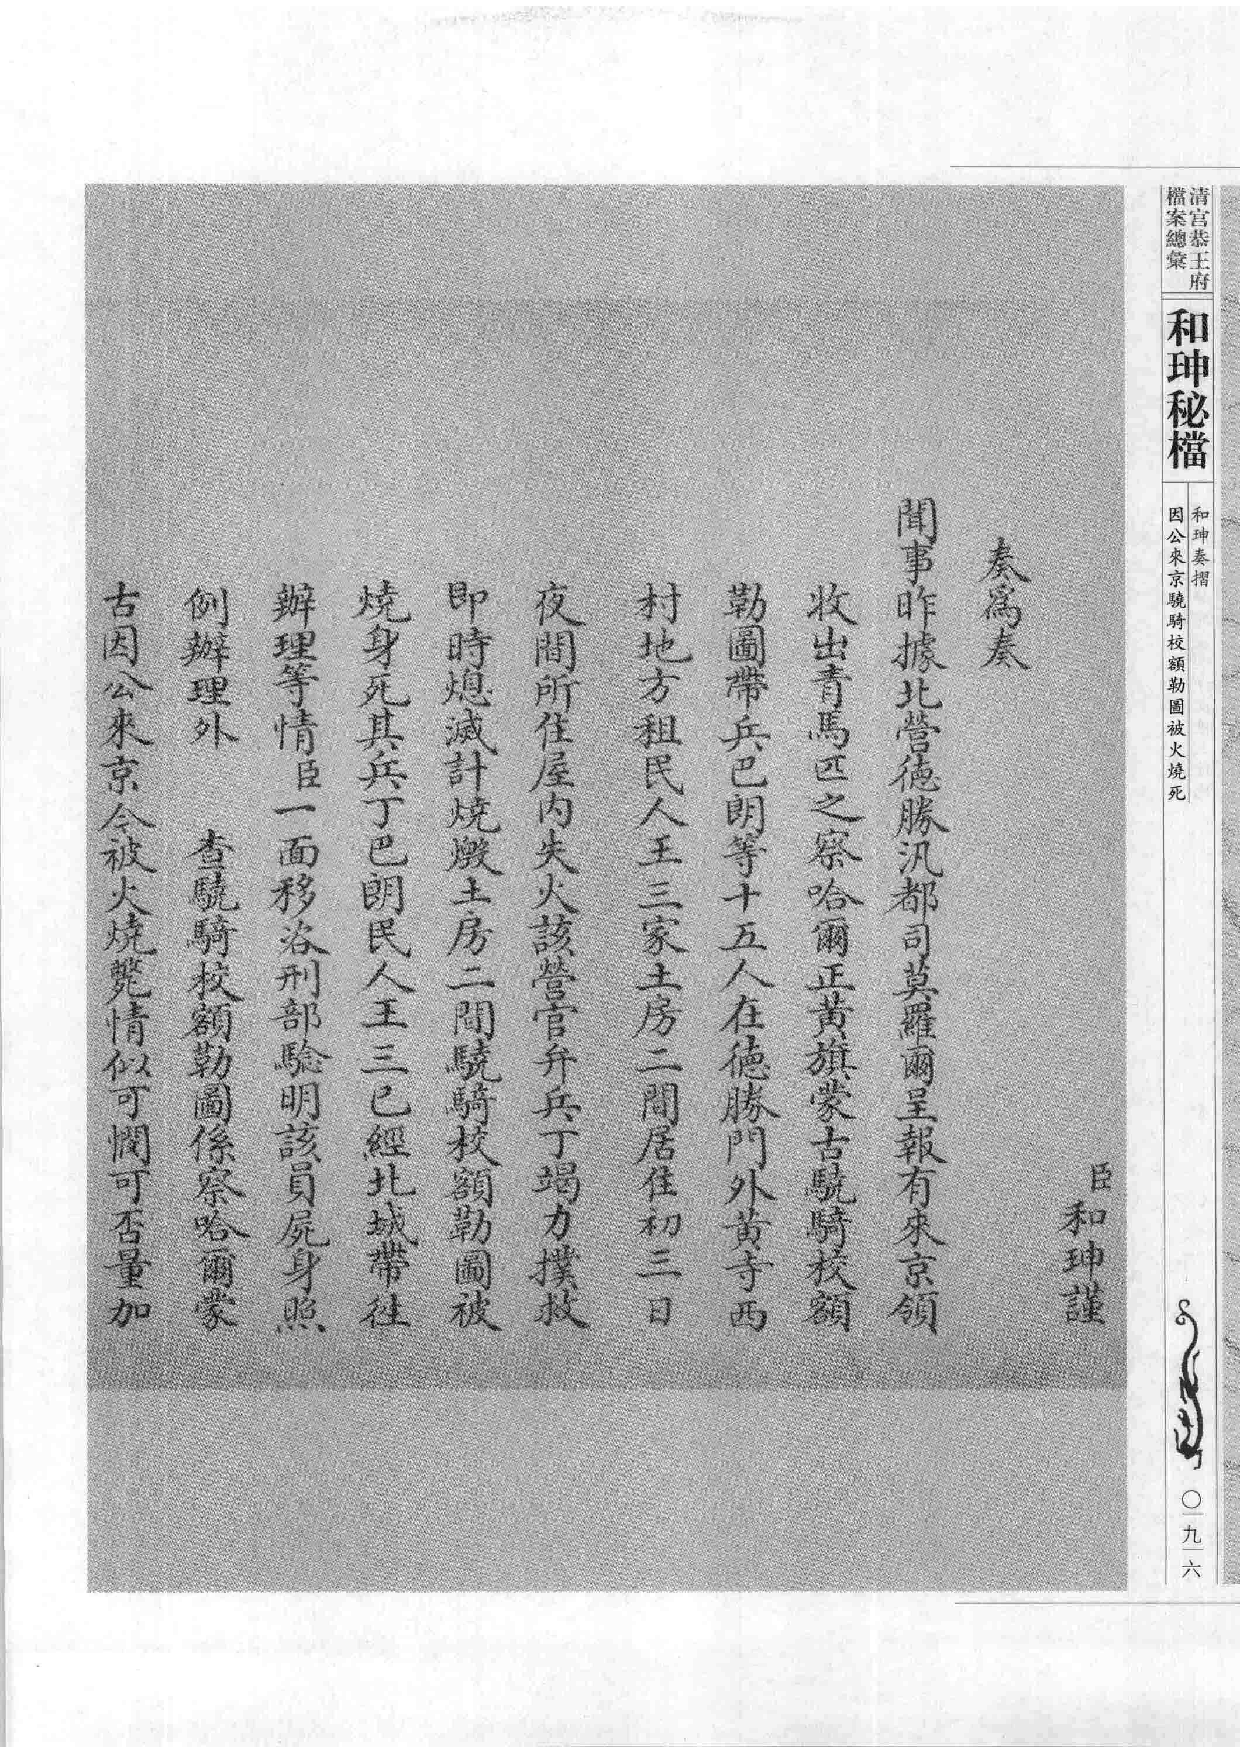 清宮恭王府
檔案總彙
和珅秘檔
和珅奏摺
因公來京驍騎校額勒圖被火燒死
〇九六
臣和珅謹
奏爲奏
聞事昨據北營德勝汛都司莫羅爾呈報有來京領
收出青馬匹之察哈爾正黃旗蒙古驍騎校額
勒圖帶兵巴朗等十五人在德勝門外黃寺西
村地方租民人王三家土房二間居住初三日
夜間所住屋內失火該營官弁兵丁竭力撲救
即時熄滅計燒燬土房二間驍騎校額勒圖被
燒身死其兵丁巴朗民人王三已經北城帶往
辦理等情臣一面移咨刑部驗明該員屍身照
例辦理外 查驍騎校額勒圖係察哈爾蒙
古因公來京今被火燒斃情似可憫可否量加